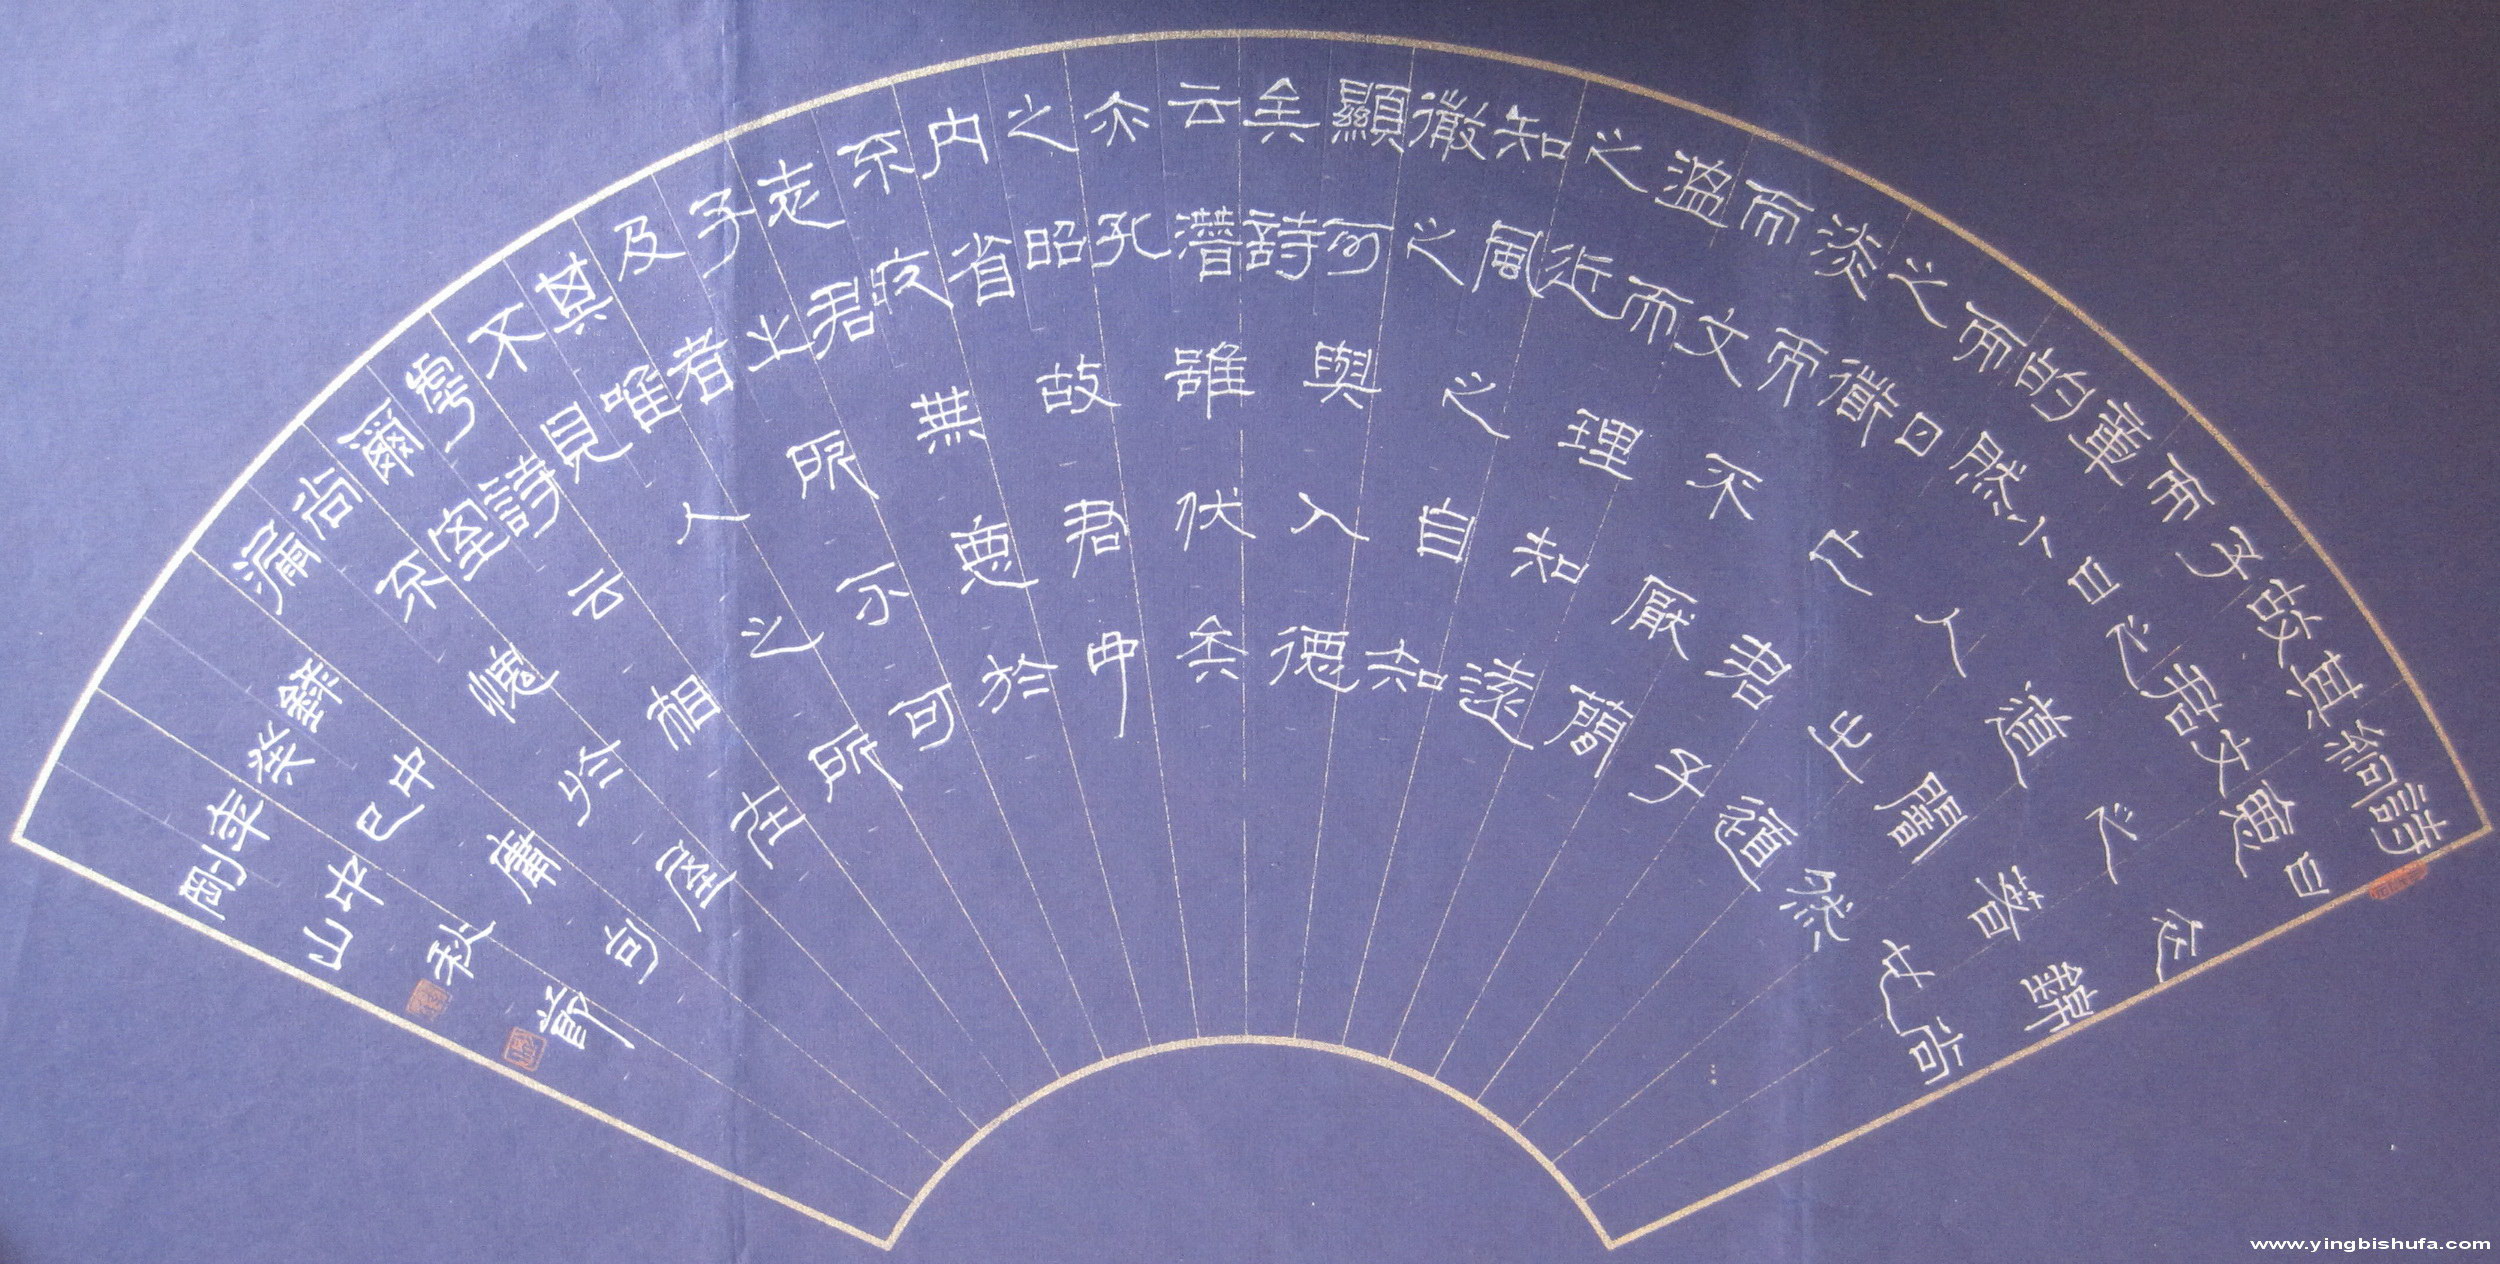 詩曰衣錦尚
絅惡
其文之著也
故君
子之道闇然
而日
章小人之道
的然
而日亡君子
之道
淡而不厭簡
而文
溫而理知遠
之近
知風之自知
微之
顯可與入德
矣詩
云潛雖伏矣
亦孔
之昭故君子
內省
不疚無惡於
志君
子之所不可
及者
其唯人之所
不見
乎詩云相在
爾室
尚不愧于屋
漏
錄中庸句
癸巳
年中秋
剛山
www.yingbishufa.com